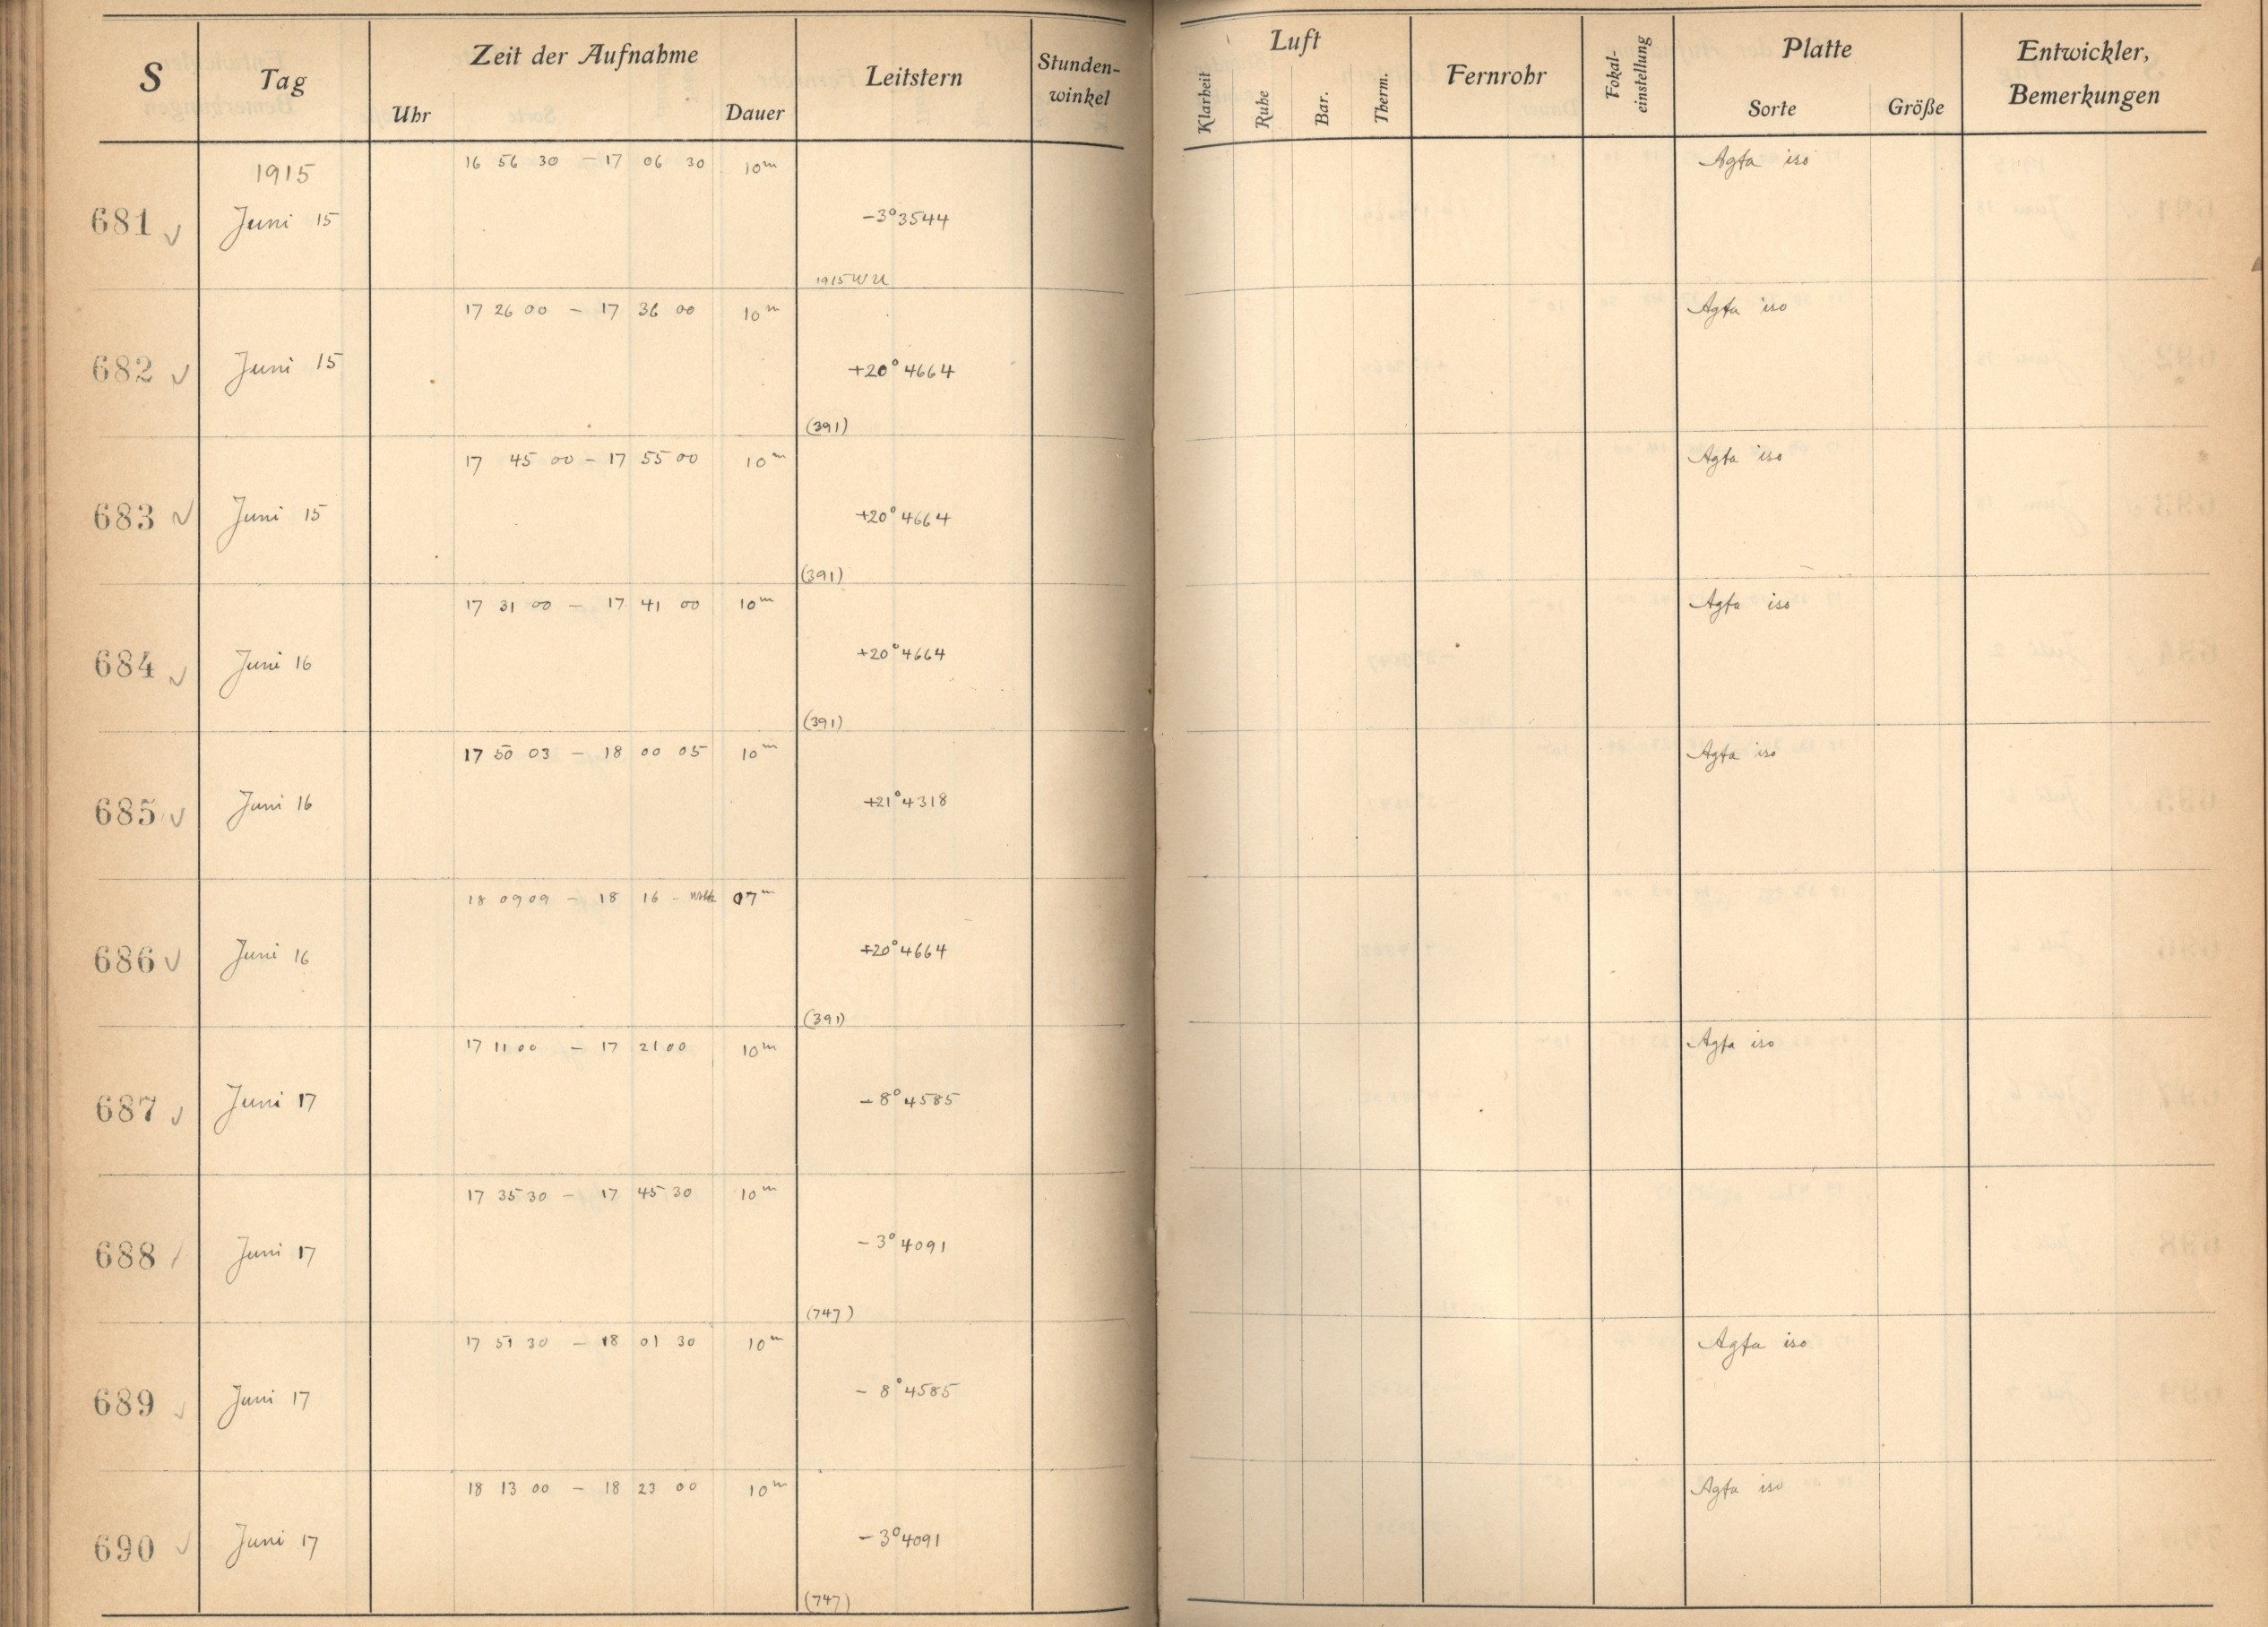 S Tag Zeit der Aufnahme Leitstern Stunden-winkel Luft Fernrohr Fokal-einstellung Platte Entwickler, Bemerkungen
Uhr Dauer Klarheit Ruhe Bar. Therm. Sorte Größe
1915 16 56 30 – 17 06 30 10m Agfa iso
681 √ Juni 15 -3° 3544
1915 WU
17 26 00 – 17 36 00 10m Agfa iso
682 √ Juni 15 +20° 4664
(391)
17 45 00 – 17 55 00 10m Agfa iso
683 √ Juni 15 +20° 4664
(391)
17 31 00 – 17 41 00 10m Agfa iso
684 √ Juni 16 +20° 4664
(391)
17 50 03 – 18 00 05 10m Agfa iso
685 √ Juni 16 +21° 4318
18 09 09 – 18 16 – 07m
686 √ Juni 16 +20° 4664
(391)
17 11 00 – 17 21 00 10m Agfa iso
687 √ Juni 17 -8° 4585
17 35 30 – 17 45 30 10m
688 / Juni 17 -3° 4091
(747)
17 51 30 – 18 01 30 10m Agfa iso
689 √ Juni 17 -8° 4585
18 13 00 – 18 23 00 10m Agfa iso
690 √ Juni 17 -3° 4091
(747)